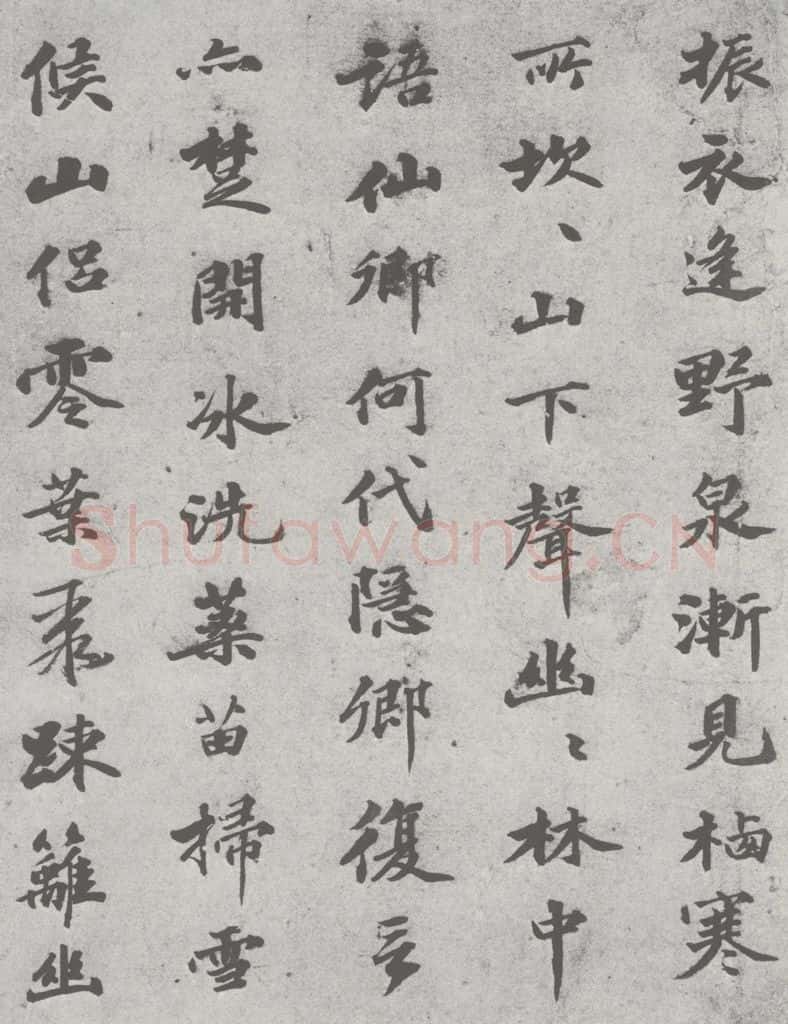 振衣逢野泉漸見栖寒
所坎、山下聲幽〻林中
語仙卿何代隱卿復言
亦楚開冰洗藥苗掃雪
候山侣零葉聚踈籬幽
Shufawang.CN